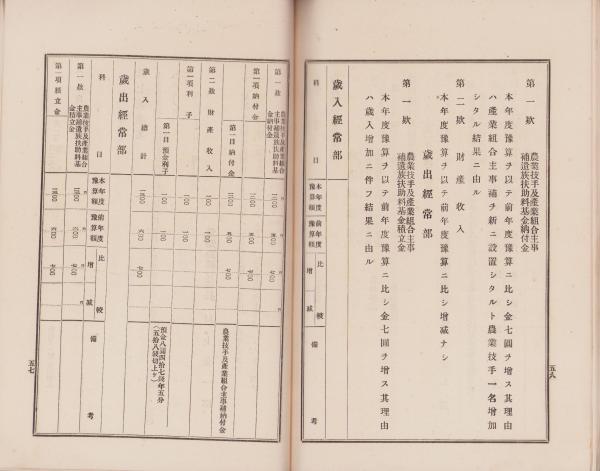 第一款 農業技手及產業組合主事補遺族扶助料基金納付金
本年度豫算ヲ以テ前年度豫算ニ比シ金七圓ヲ增ス其理由
ハ產業組合主事補ヲ新ニ設置シタルト農業技手一名增加
シタル結果ニ由ル
第二款 財產收入
本年度豫算ヲ以テ前年度豫算ニ比シ增減ナシ
歲出經常部
第一款 農業技手及產業組合主事補遺族扶助料基金積立金
本年度豫算ヲ以テ前年度豫算ニ比シ金七圓ヲ增ス其理由
ハ歲入增加ニ伴フ結果ニ由ル
歲入經常部
科目
本年度豫算額
前年度豫算額
比較
增
減
備考
五六
第一款 農業技手及產業組合主事補遺族扶助料基金納付金
第一項納付金
第一目納付金
農業技手及產業組合主事補納付金
第二款 財產收入
第一項利子
第一目預金利子
預金八圓四拾七錢年五分
(五拾八錢切上ケ)
歲入總計
歲出經常部
科目
本年度豫算額
前年度豫算額
比較
增
減
備考
第一款 農業技手及產業組合主事補遺族扶助料基金積立金
第一項積立金
五七